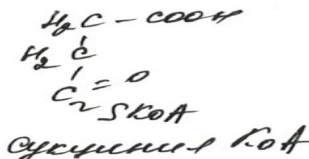 H₂C – COOH
H₂C
C = O
SKoA
сукцинил KoA